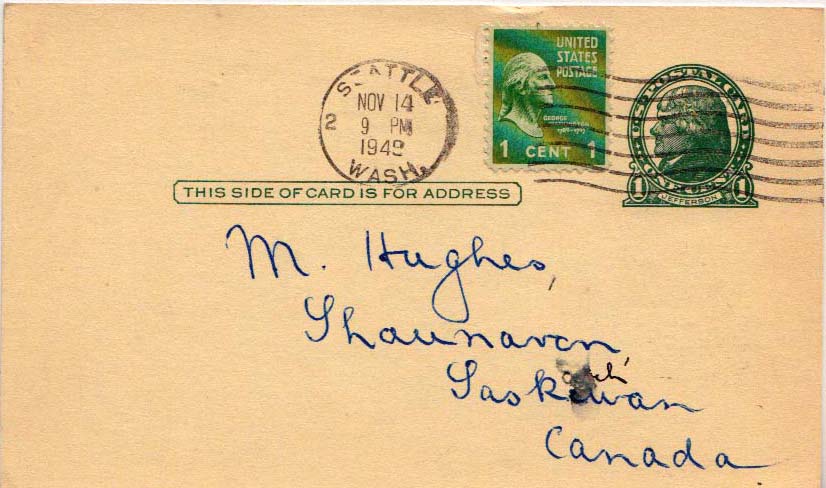 SEATTLE
2
NOV 14
9 PM
WASH.
UNITED
STATES
POSTAGE
GEORGE
1 CENT 1
U.S. POSTAL CARD
1 1
JEFFERSON
THIS SIDE OF CARD IS FOR ADDRESS
M. Hughes,
Shaunavon,
Saskatchewan
Canada